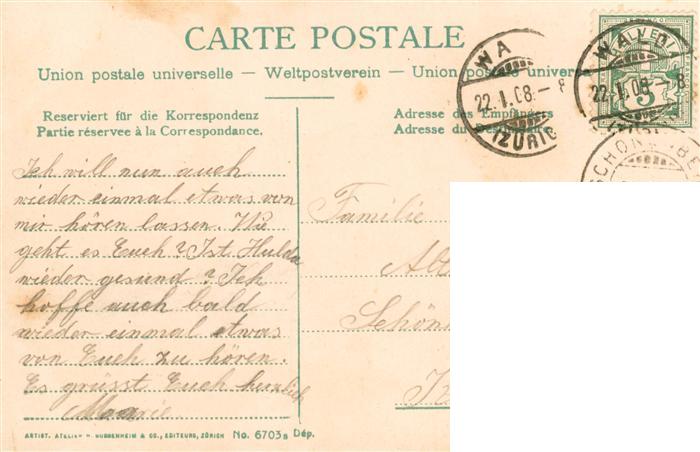 CARTE POSTALE
Union postale universelle – Weltpostverein – Union postale univer
Reserviert für die Korrespondenz
Partie réservee à la Correspondance.
Adresse des Empfängers
Adresse du
WA
22.I.08 – 8
(ZÜRIC
WAL
22.I.08 – 8
HELVETIA
5
SCHÖN
Ich will nun auch
wieder einmal etwas von
mir hören lassen. Wie
geht es Euch? Ist Hulda
wieder gesund? Ich
hoffe auch bald
wieder einmal etwas
von Euch zu hören.
Es grüsst Euch herzlich
Marie
Familie
Schön
ARTIST. ATELIER H. GUGGENHEIM & CO., EDITEURS, ZÜRICH No. 6703s Dép.